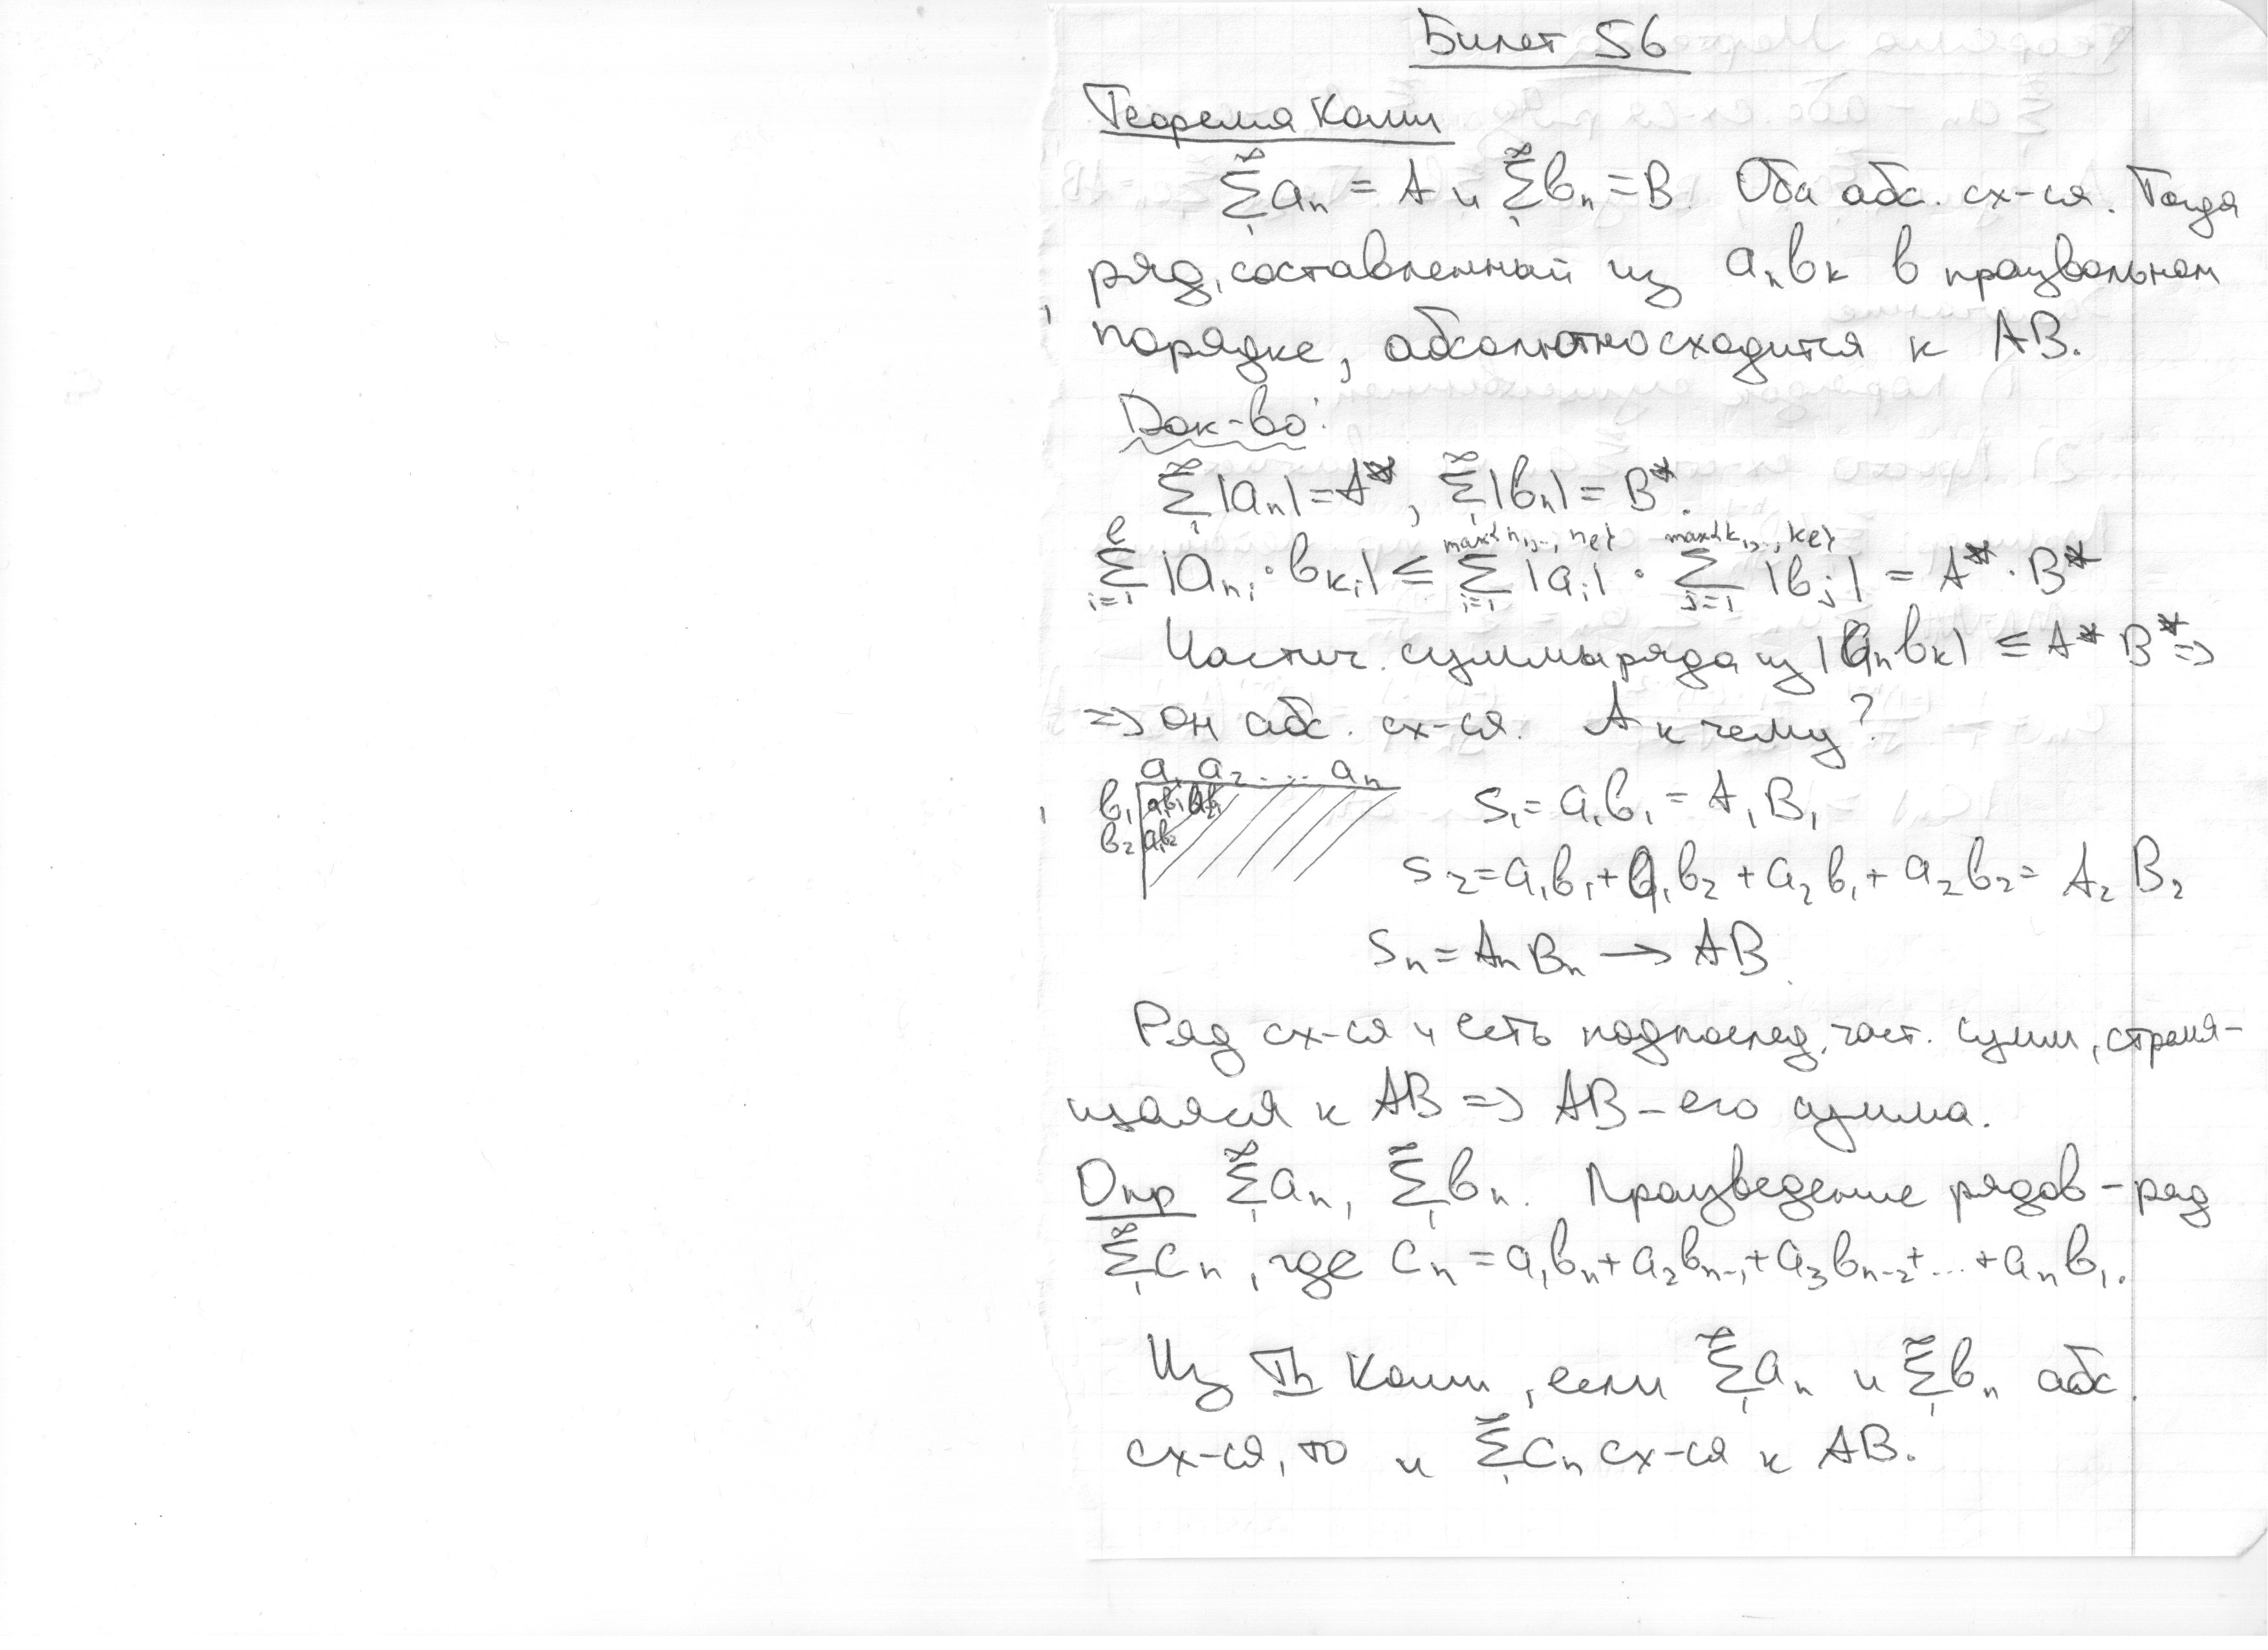 Билет 56
Теорема Коши
∞∑1 aₙ = A и ∞∑1 bₙ = B. Оба абс. сх-ся. Тогда
ряд, составленный из aₙbₖ в произвольном
порядке, абсолютно сходится к AB.
Док-во:
∞∑1 |aₙ| = A*, ∞∑1 |bₙ| = B*.
l∑i=1 |aₙᵢ · bₖᵢ| ≤ max{n₁,..., nₗ}∑i=1 |aᵢ| · max{k₁,..., kₗ}∑j=1 |bⱼ| = A* · B*
Частич. суммы ряда из |aₙbₖ| ≤ A* B* =>
=> он абс. сх-ся. А к чему?
a₁ a₂ ... aₙ
b₁ a₁b₁ a₂b₁
b₂ a₁b₂
S₁ = a₁b₁ = A₁B₁
S₂ = a₁b₁ + a₁b₂ + a₂b₁ + a₂b₂ = A₂B₂
Sₙ = AₙBₙ → AB.
Ряд сх-ся и есть подпослед. част. сумм, стремя-
щаяся к AB => AB – его сумма.
Опр ∞∑1 aₙ, ∞∑1 bₙ. Произведение рядов – ряд
∞∑1 cₙ, где cₙ = a₁bₙ + a₂bₙ₋₁ + a₃bₙ₋₂ + ... + aₙb₁.
Из Th Коши, если ∞∑1 aₙ и ∞∑1 bₙ абс.
сх-ся, то и ∞∑1 cₙ сх-ся к AB.